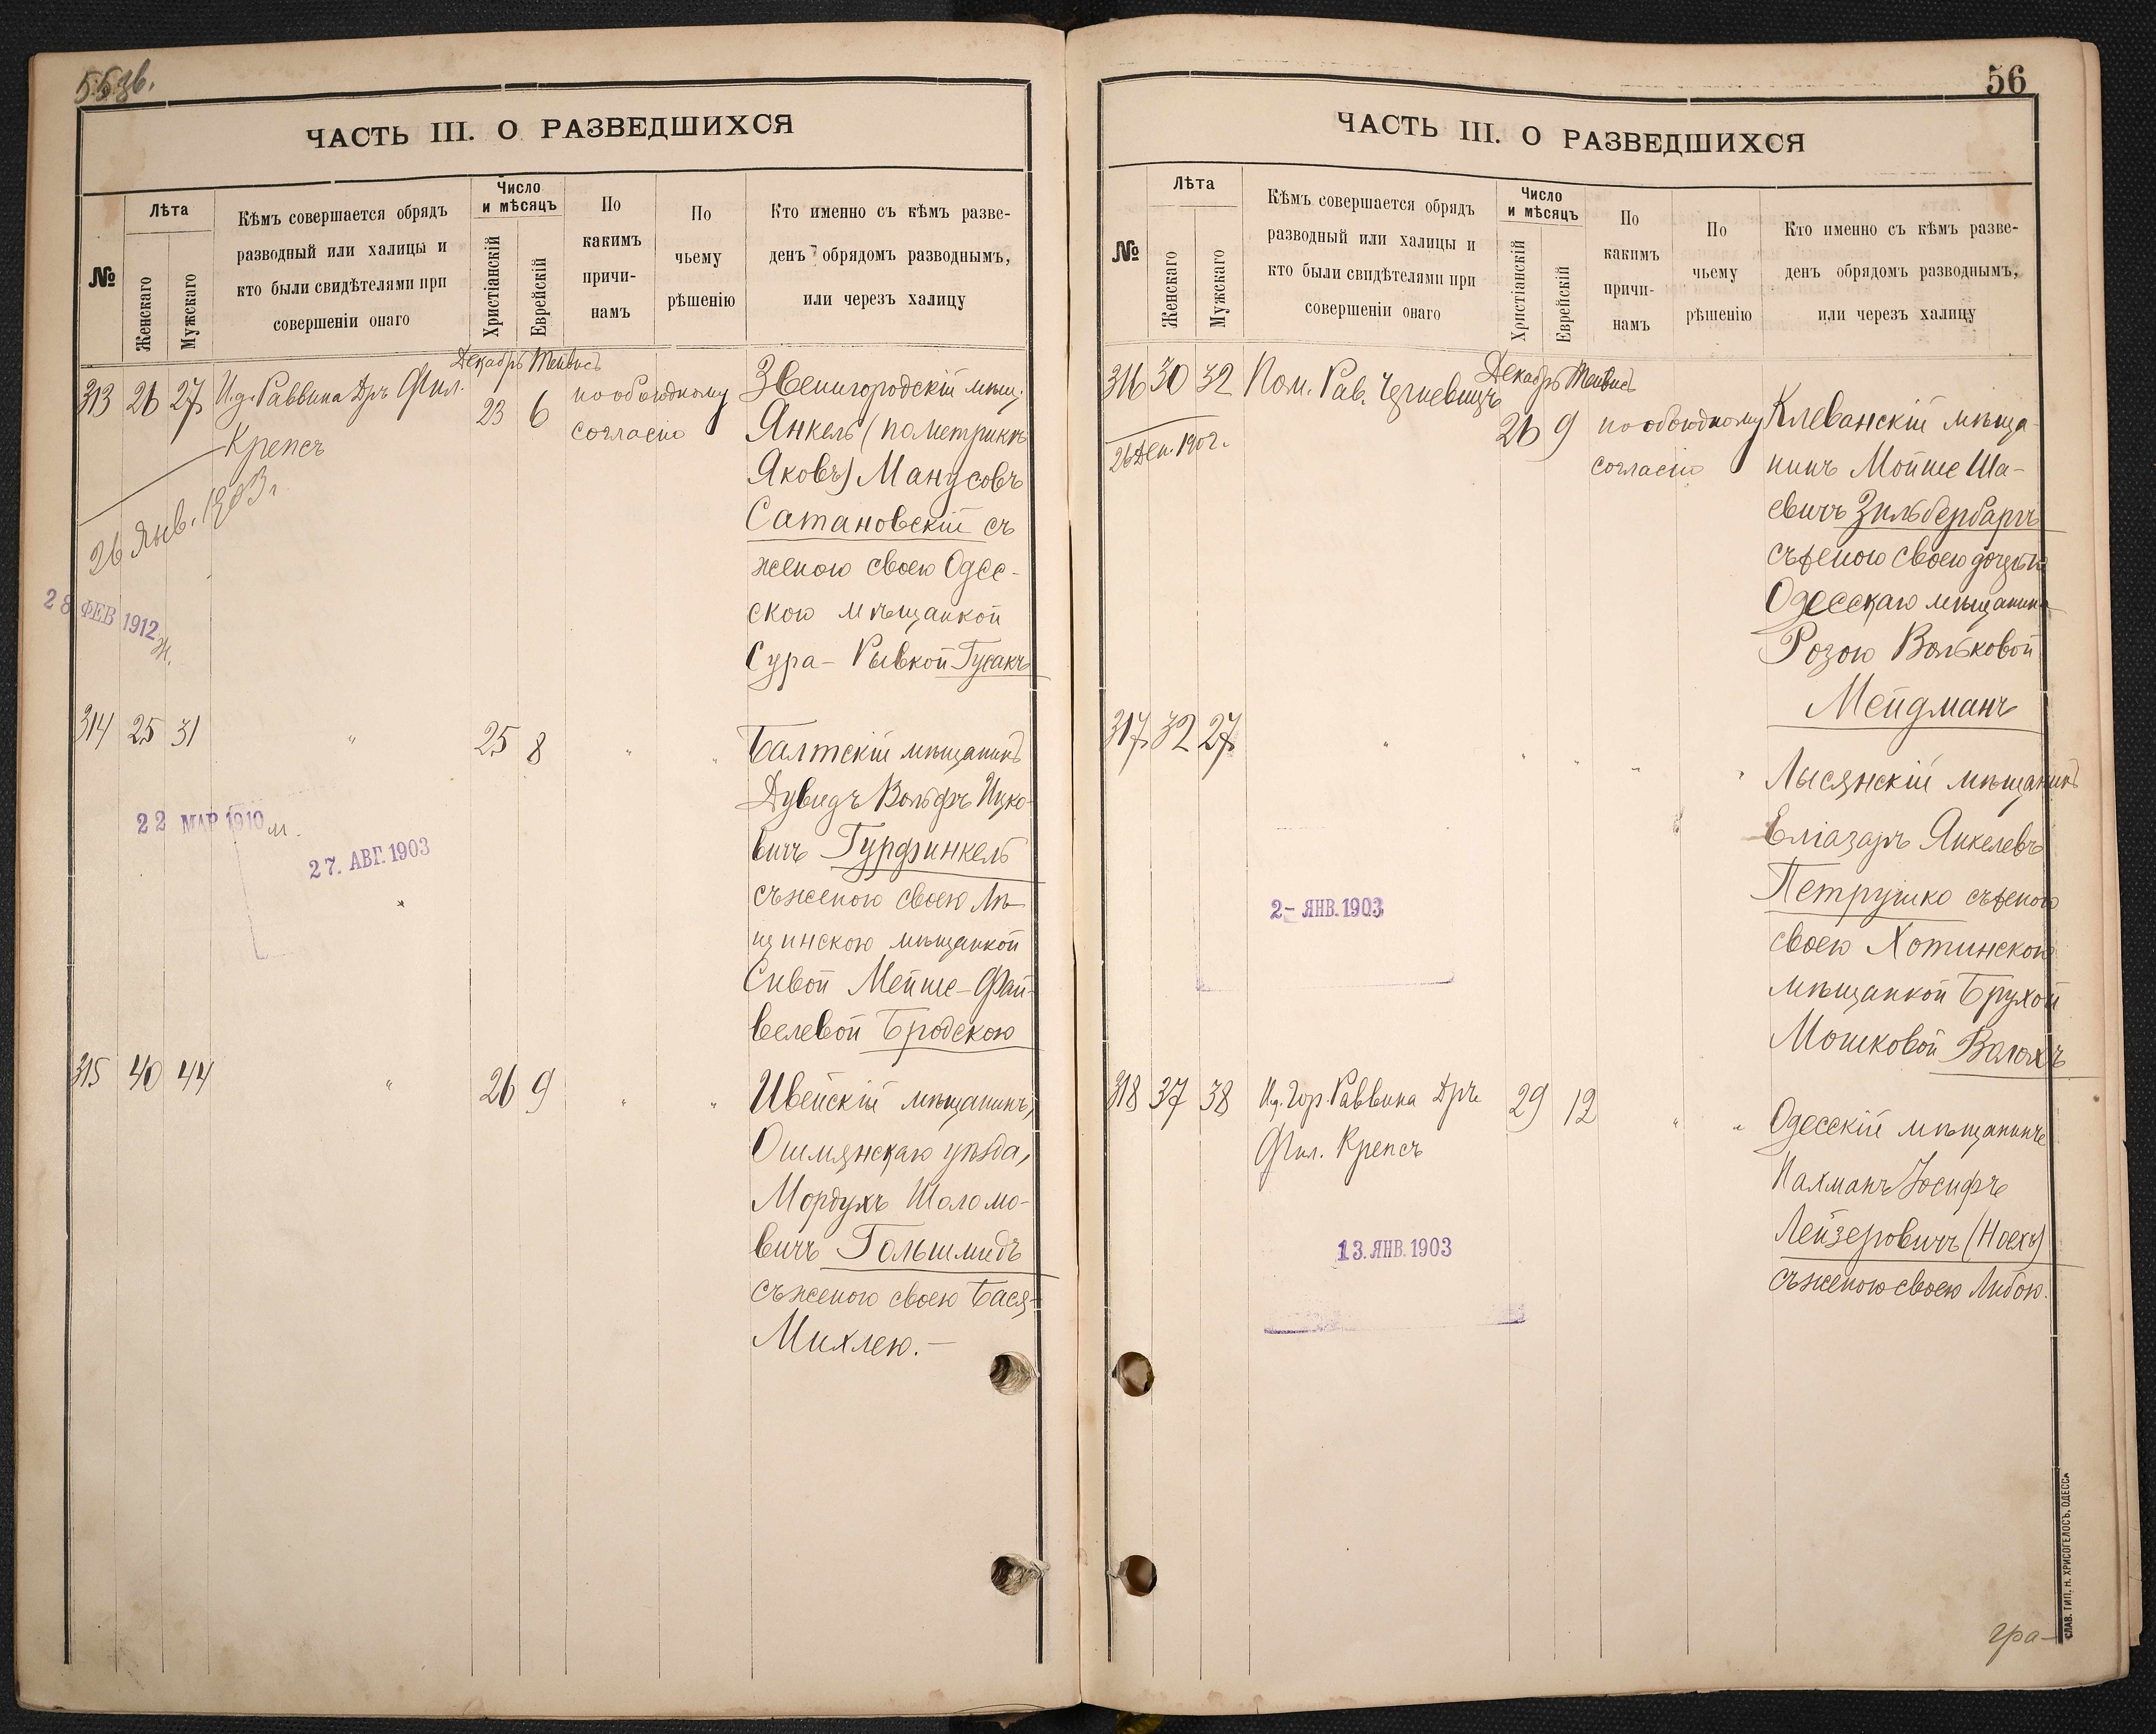 55зв.
ЧАСТЬ III. О РАЗВЕДШИХСЯ
№
Лѣта
Женскаго
Мужскаго
Кѣмъ совершается обрядъ
разводный или халицы и
кто были свидѣтелями при
совершеніи онаго
Число
и мѣсяцъ
Христіанскій
Еврейскій
По
какимъ
причи-
намъ
По
чьему
рѣшенію
Кто именно съ кѣмъ разве-
денъ обрядомъ разводнымъ,
или черезъ халицу
Декабрь Тейвисъ
313 26 27 И.д. Раввина Дръ Фил.
Крепсъ
23 6
по обоюдному
согласію
Звенигородскій мѣщ.
Янкель (по метрикѣ
Яковъ) Манусовъ
Сатановскій съ
женою своею Одес-
скою мѣщанкой
Сура-Рывкой Гусакъ
26 Янв. 1903 г.
28 ФЕВ 1912
ж.
314 25 31 " 25 8 " "
Балтскій мѣщанинъ
Дувидъ Вольфъ Ицко-
вичъ Гурфинкель
съ женою своею
мѣщанкой
Сивой Мейше-Фай-
велевой Бродскою
22 МАР 1910 м.
27. АВГ. 1903
315 40 44 " 26 9 " "
Ивейскій мѣщанинъ,
Ошмянскаго уѣзда,
Мордухъ Шоломо-
вичъ Гольшмидъ
съ женою своею Бася-
Михлею.-
56
ЧАСТЬ III. О РАЗВЕДШИХСЯ
№
Лѣта
Женскаго
Мужскаго
Кѣмъ совершается обрядъ
разводный или халицы и
кто были свидѣтелями при
совершеніи онаго
Число
и мѣсяцъ
Христіанскій
Еврейскій
По
какимъ
причи-
намъ
По
чьему
рѣшенію
Кто именно съ кѣмъ разве-
денъ обрядомъ разводнымъ,
или черезъ халицу
Декабрь Тейвисъ
316 30 32 Пом. Рав.
26 9
по обоюдному
согласію
Клеванскій мѣща-
нинъ Мойше Ша-
евичъ Зильбербартъ
съ женою своею дочерью
Одесскаго мѣщанина
Розою Вольковой
Мейдманъ
26 Дек. 1902 г.
317 32 27 " " " " "
Лысянскій мѣщанинъ
Еліазаръ Янкелевъ
Петрушко съ женою
своею Хотинскою
мѣщанкой Брухой
Мошковой Валахъ
2- ЯНВ. 1903
318 37 38 И.д. Гор. Раввина Дръ
Фил. Крепсъ
29 12 " "
Одесскій мѣщанинъ
Нахманъ Іосифъ
Лейзеровичъ (Ноехъ)
съ женою своею Либою.
13. ЯНВ. 1903
гра-
СЛАВ. ТИП. Н. ХРИСОГЕЛОСЪ, ОДЕССА